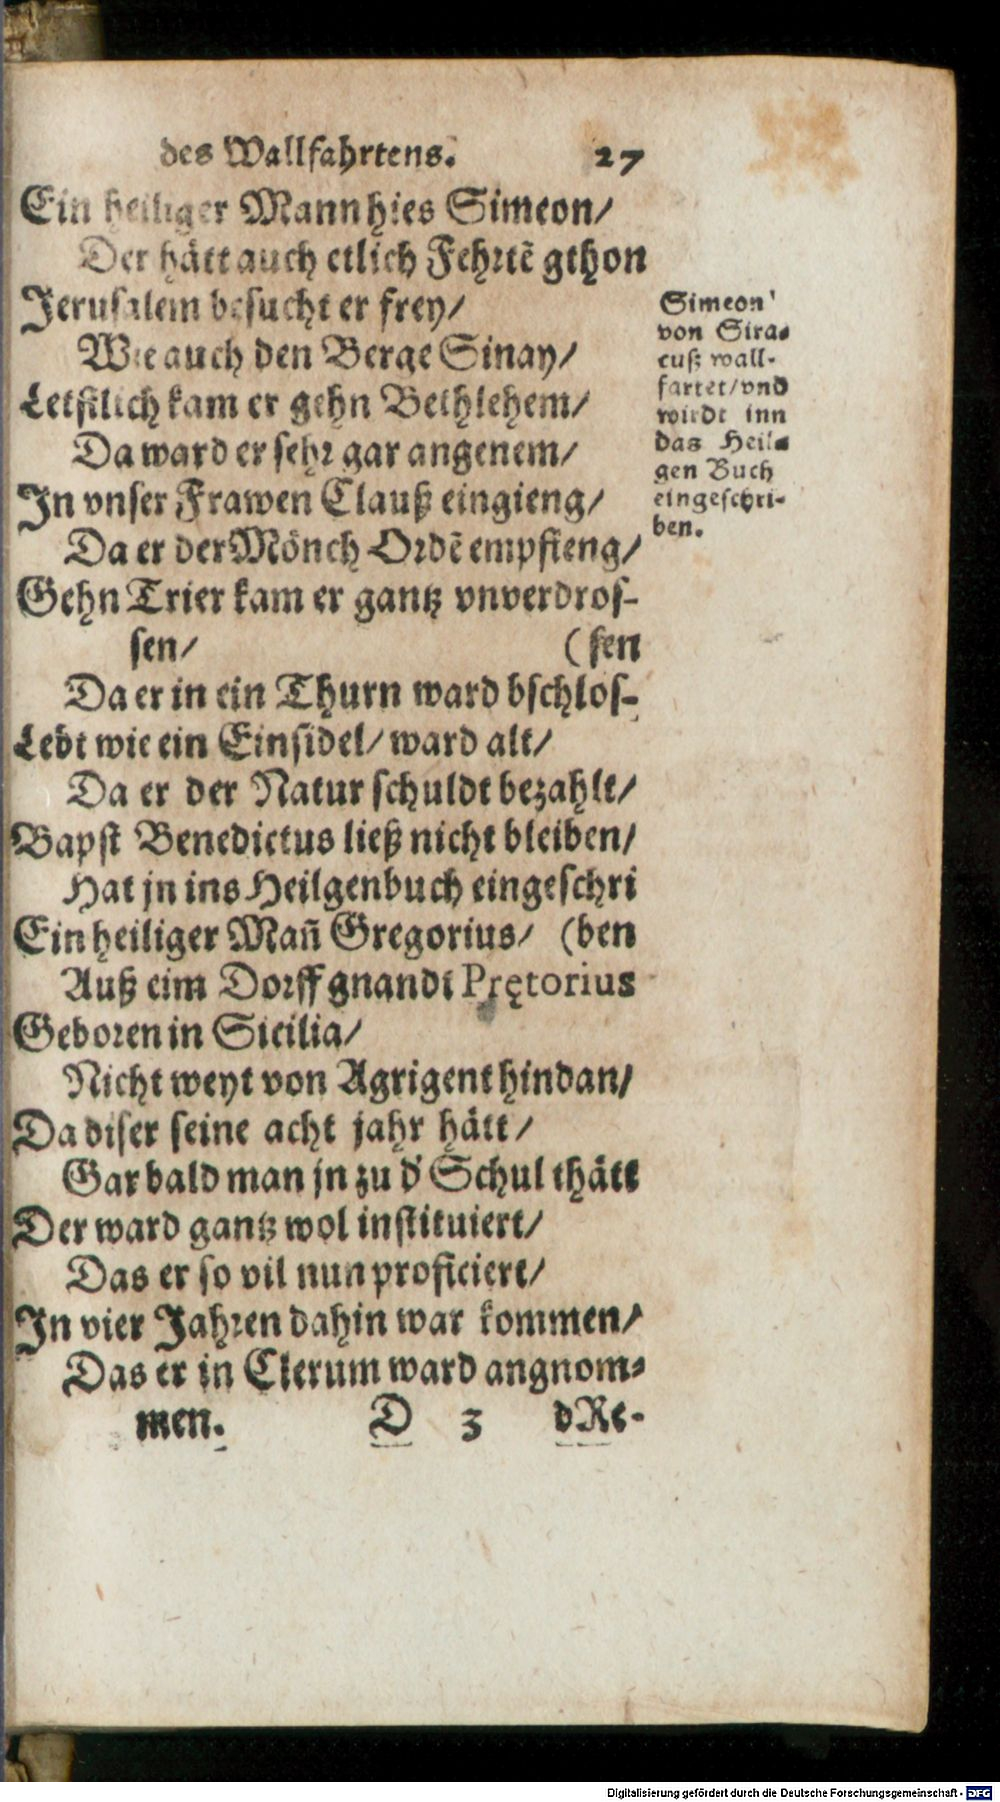 des Wallfahrtens. 27
Ein heiliger Mann hies Simeon/
Der hätt auch etlich Fehrtẽ gthon
Jerusalem besucht er frey/
Wie auch den Berge Sinay/
Letstlich kam er gehn Bethlehem/
Da ward er sehr gar angenem/
In vnser Frawen Clauß eingieng/
Da er der Mönch Ordẽ empfieng/
Gehn Trier kam er gantz vnverdros-
sen/ (sen
Da er in ein Thurn ward bschlos-
Lebt wie ein Einsidel/ ward alt/
Da er der Natur schuldt bezahlt/
Bapst Benedictus ließ nicht bleiben/
Hat jn ins Heilgenbuch eingeschri
Ein heiliger Mañ Gregorius/ (ben
Auß eim Dorff gnandt Prętorius
Geboren in Sicilia/
Nicht weyt von Agrigent hindan/
Da diser seine acht jahr hätt/
Gar bald man jn zu d' Schul thätt
Der ward gantz wol instituiert/
Das er so vil nun proficiert/
In vier Jahren dahin war kommen/
Das er in Clerum ward angnom-
men. D 3 dRe-
Simeon
von Sira-
cuß wall-
fartet/vnd
wirdt inn
das Heil-
gen Buch
eingeschri-
ben.
Digitalisierung gefördert durch die Deutsche Forschungsgemeinschaft - DFG